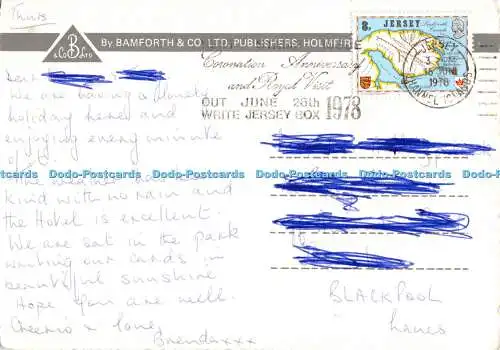 Thurs
B
& Co Ltd
By BAMFORTH & CO. LTD., PUBLISHERS, HOLMFIR
8p JERSEY
JERSEY
1978
CHANNEL ISLANDS
Coronation Anniversary
and Royal Visit
OUT JUNE 26th 1978
WRITE JERSEY BOX
Dear
We are having a lovely
holiday here and
enjoying every minute
of it.
The weather
kind with no rain and
the Hotel is excellent.
We are sat in the park
writing our cards in
beautiful sunshine
Hope you are well.
Cheerio & love
Brenda xxx
BLACKPOOL
Lancs
Dodo-Postcards Dodo-Postcards Dodo-Postcards Dodo-Postcards